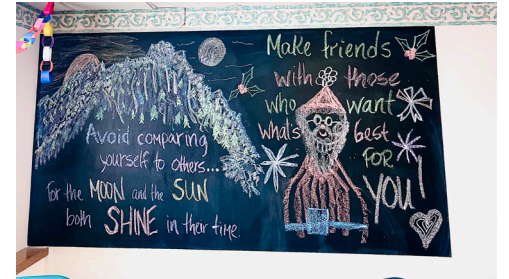 Avoid comparing
yourself to others...
For the MOON and the SUN
both SHINE in their time.
Make friends
with those
who want
what's best
FOR
YOU!